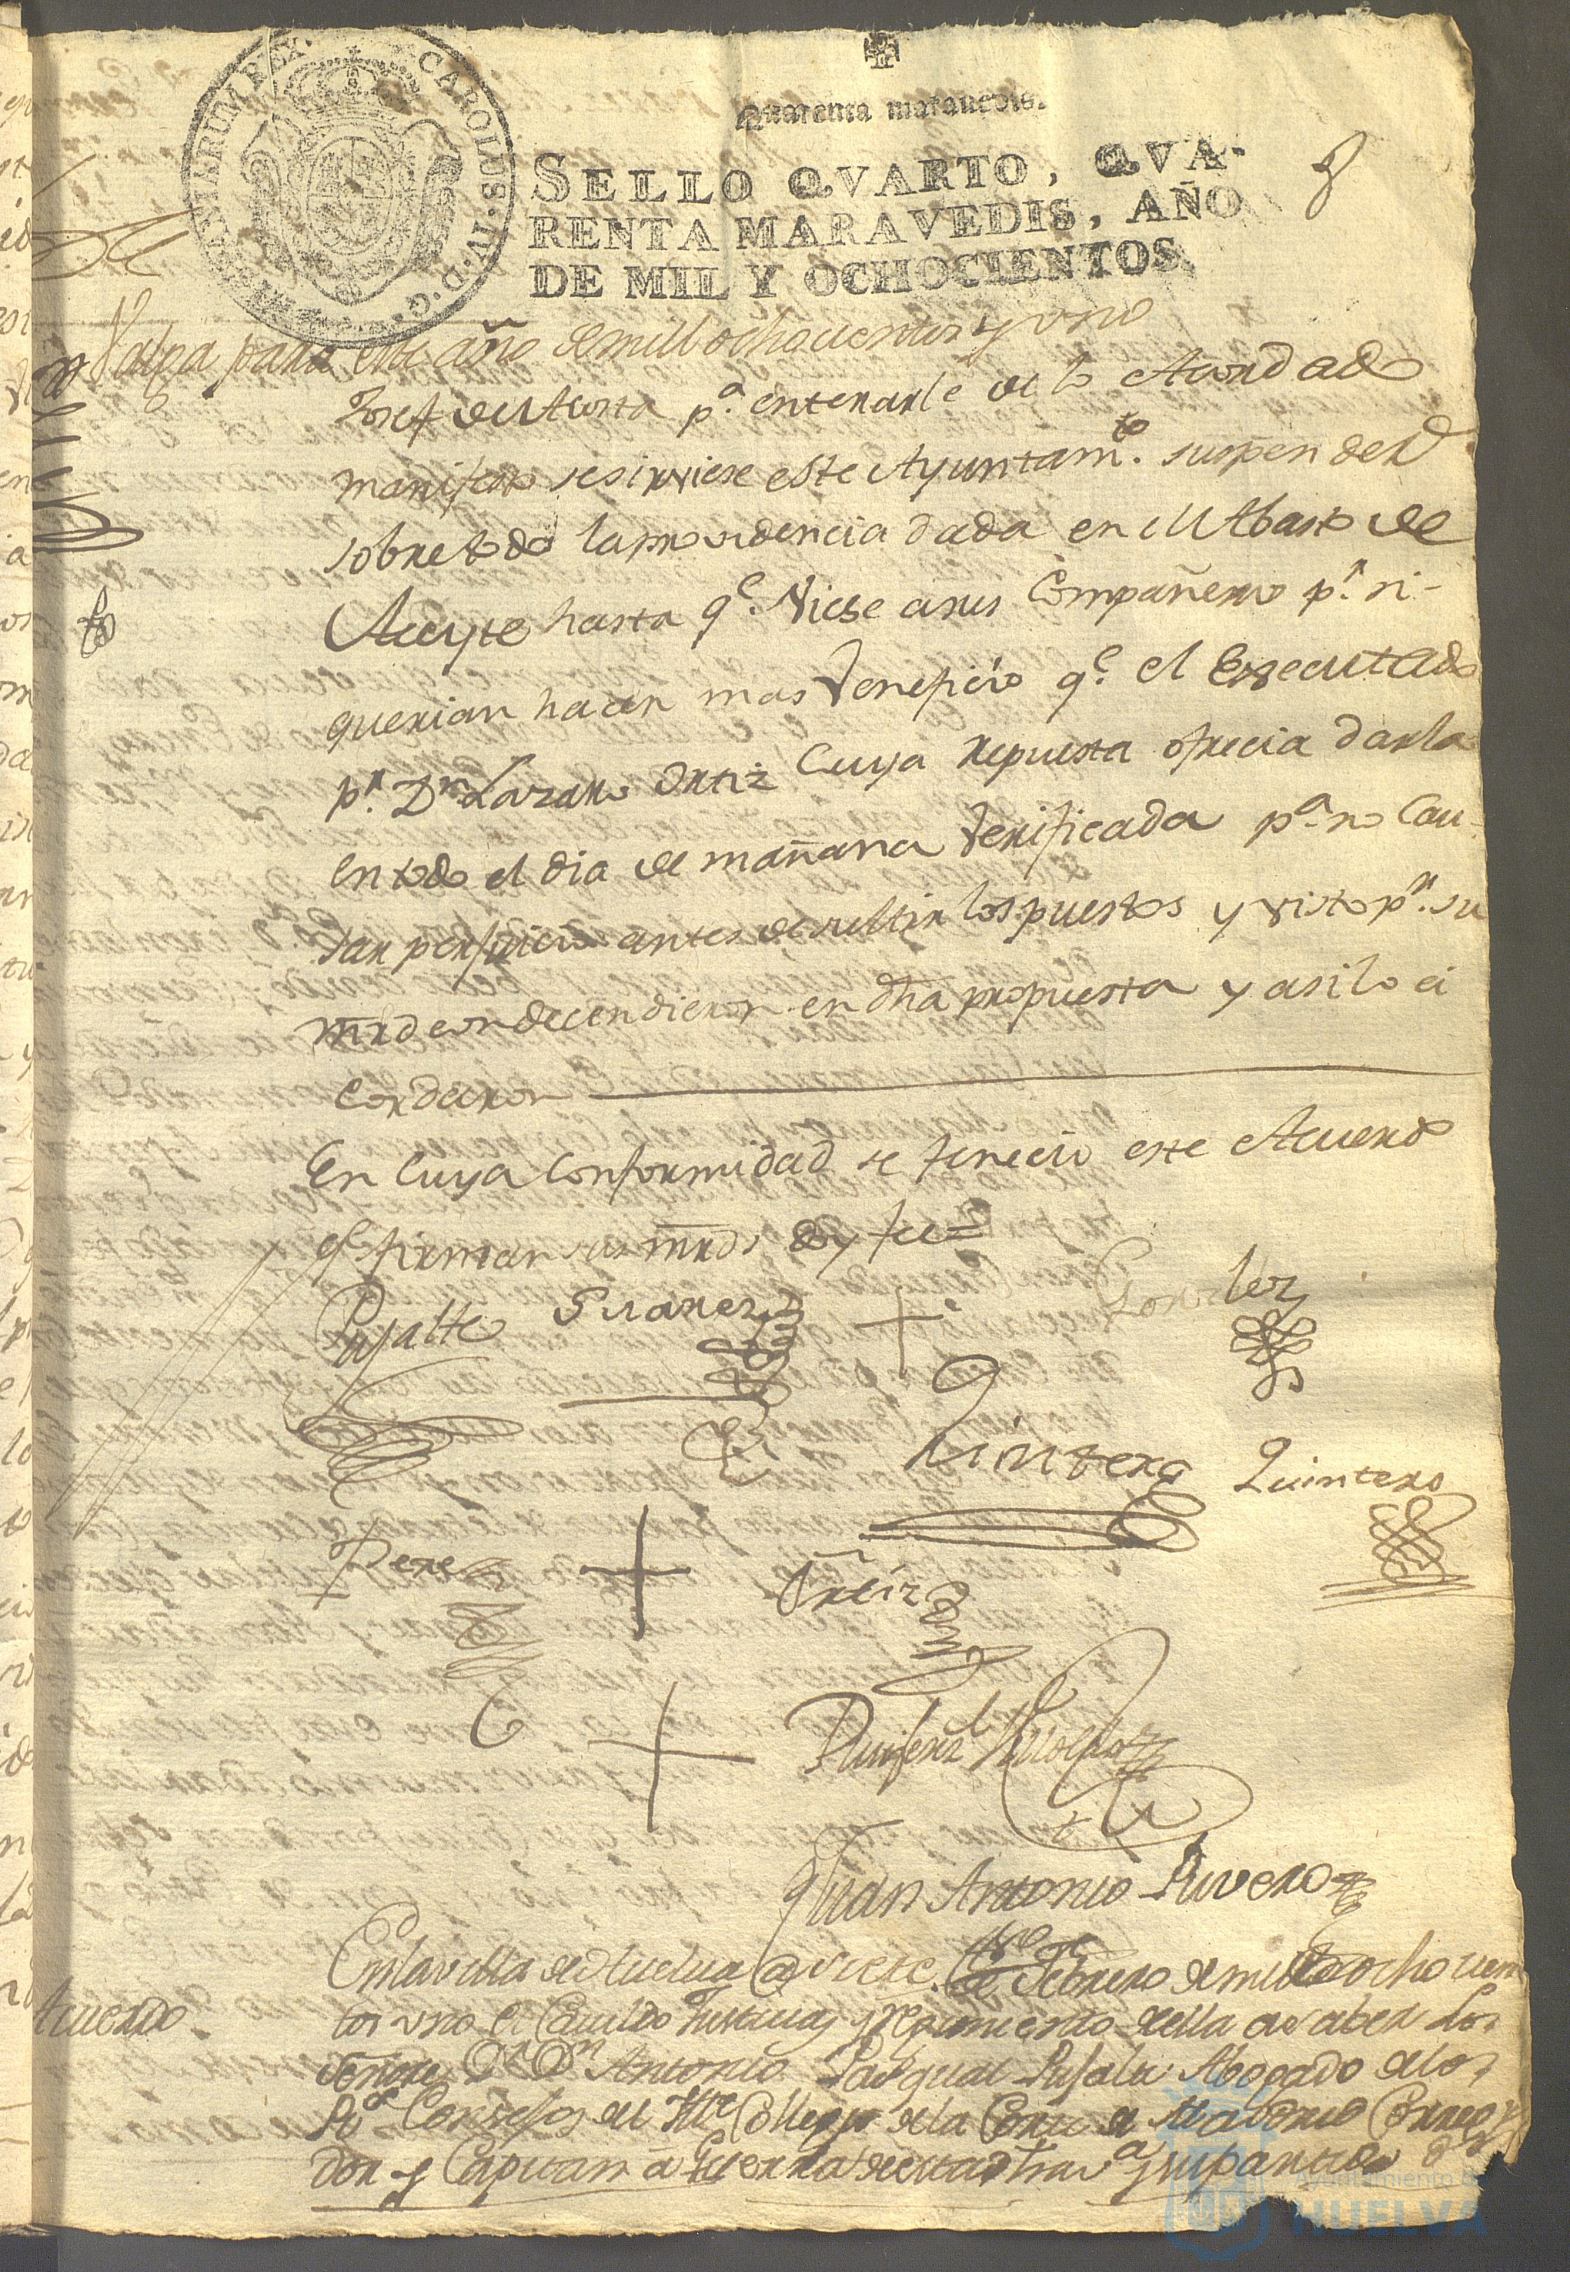 CAROLUS·IV·D·G·HISPANIARUM·REX·
Quarenta maravedis.
SELLO QVARTO, QVA-
RENTA MARAVEDIS, AÑO
DE MIL Y OCHOCIENTOS.
8
Valga para este año de mill ochocientos y uno
Josef de Acosta pª. enterarle de lo Acordado
manifesto se sirviese este Ayuntamto. suspender
sobre todo la providencia dada en el Abasto de
Aceyte hasta qe. Viese a sus Compañeros pr. si-
querian hacer mas Veneficio qe. el Executado
pr. Dn. Lazaro Ortiz Cuya repuesta ofrecia darla
en todo el dia de mañana Verificada pª. no Cau-
sar perjuicio antes de sultir los puestos y visto pr. su
mrd condecendieron en dha propuesta y asi lo a
cordaron
En Cuya Conformidad se fenecio este Acuerdo
qe. firman sus mrds doy fee=
Pujalte Suarez + Gonzalez
Quintero Quintero
Perez + Ortiz
+
Juan Antonio Rivero
Acuerdo
En la villa de Huelva a siete de Febrero de mill ochocien
tos uno el Cavildo Justicia y regimiento della a saber Los
señores Dn. Dn. Antonio Pasqual Pujalte Abogado de los
Rs. Consejos del Ille. Collegio de la Corte de Madrid Correg
dor y Capitan a Guerra de esta dha va. y su partido
Ayuntamiento de
HUELVA